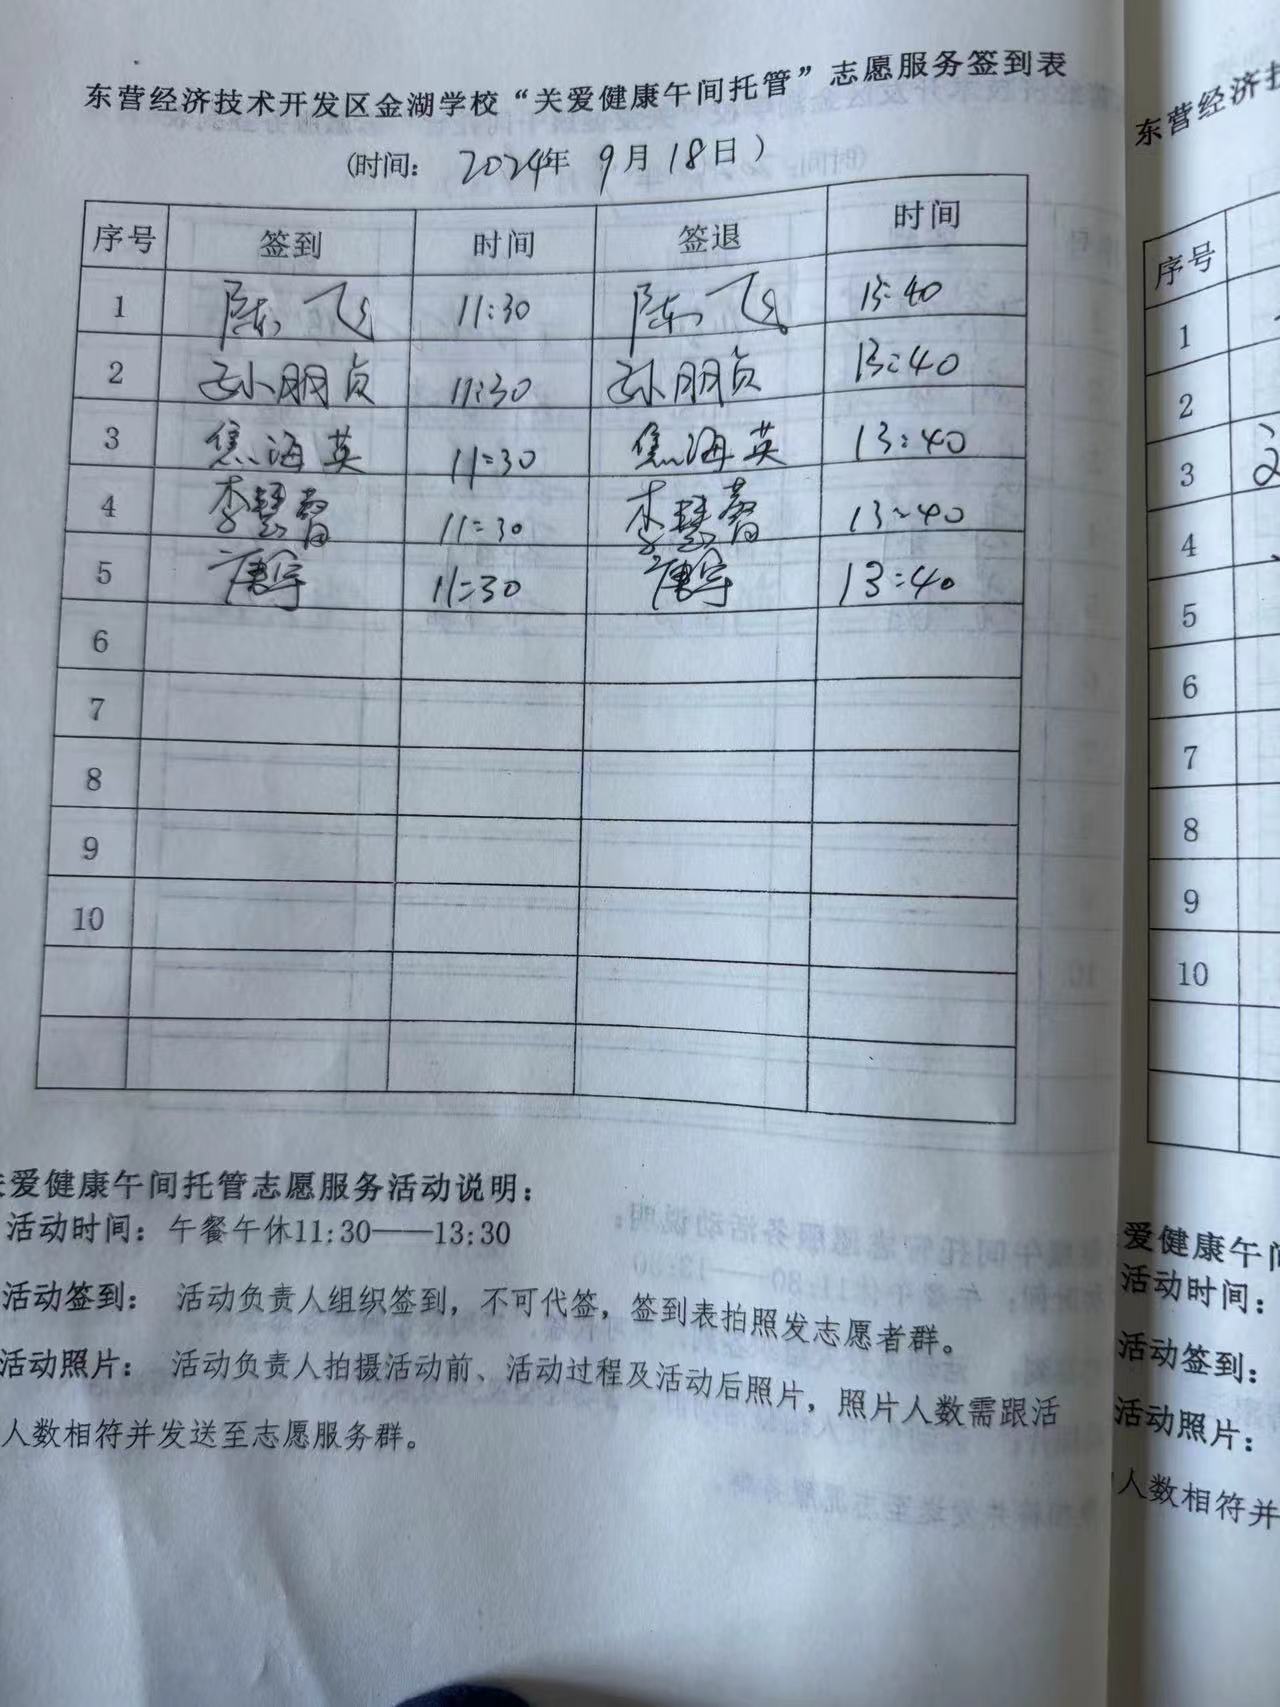 东营经济技术开发区金湖学校“关爱健康午间托管”志愿服务签到表
(时间： 2024年 9月 18日)
序号 签到 时间 签退 时间
1 陈飞 11:30 陈飞 13:40
2 孙朋贞 11:30 孙朋贞 13:40
3 焦海英 11:30 焦海英 13:40
4 李慧馨 11:30 李慧馨 13:40
5 11:30 13:40
6
7
8
9
10
关爱健康午间托管志愿服务活动说明：
活动时间：午餐午休11:30——13:30
活动签到： 活动负责人组织签到，不可代签，签到表拍照发志愿者群。
活动照片： 活动负责人拍摄活动前、活动过程及活动后照片，照片人数需跟活
人数相符并发送至志愿服务群。
东营经济技
序号
1
2
3
4
5
6
7
8
9
10
爱健康午间
活动时间：
活动签到：
活动照片：
人数相符并